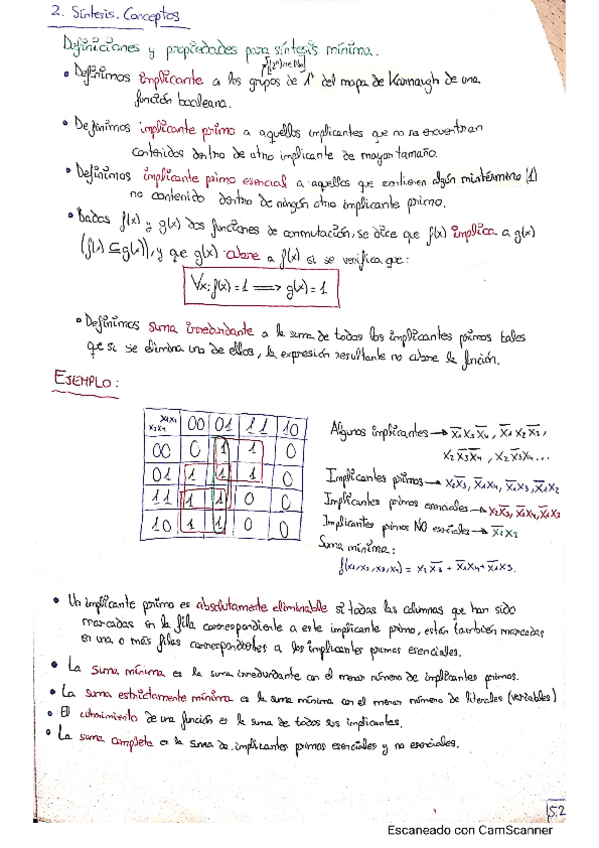 2. Síntesis. Conceptos
Definiciones y propiedades para síntesis mínima.
[(2ⁿ) n∈N₀]
• Definimos implicante a los grupos de 1' del mapa de Karnaugh de una
función booleana.
• Definimos implicante primo a aquellos implicantes que no se encuentran
contenidos dentro de otro implicante de mayor tamaño.
• Definimos implicante primo esencial a aquellos que contienen algún mintérmino (1)
no contenido dentro de ningún otro implicante primo.
• Dadas f(x) y g(x) dos funciones de conmutación, se dice que f(x) implica a g(x)
(f(x) ⊆ g(x)), y que g(x) cubre a f(x) si se verifica que:
∀x: f(x)=1 ⟹ g(x)=1
• Definimos suma irredundante a la suma de todos los implicantes primos tales
que si se elimina uno de ellos, la expresión resultante no cubre la función.
EJEMPLO:
x₁x₂ 00 01 11 10
x₃x₄
00 0 1 1 0
01 1 1 1 0
11 1 1 0 0
10 1 1 0 0
Algunos implicantes → x̄₁x₃x̄₄, x̄₁x₂x̄₃,
x₂x̄₃x̄₄, x₂x̄₃x₄...
Implicantes primos → x₂x̄₃, x̄₁x₄, x̄₁x₃, x̄₁x₂
Implicantes primos esenciales → x₂x̄₃, x̄₁x₄, x̄₁x₃
Implicantes primos NO esenciales → x̄₁x₂
Suma mínima:
f(x₁,x₂,x₃,x₄) = x₂x̄₃ + x̄₁x₄ + x̄₁x₃.
• Un implicante primo es absolutamente eliminable si todas las columnas que han sido
marcadas en la fila correspondiente a este implicante primo, están también marcadas
en una o más filas correspondientes a los implicantes primos esenciales.
• La suma mínima es la suma irredundante con el menor número de implicantes primos.
• La suma estrictamente mínima es la suma mínima con el menor número de literales (variables)
• El cubrimiento de una función es la suma de todos sus implicantes.
• La suma completa es la suma de implicantes primos esenciales y no esenciales.
5.2
Escaneado con CamScanner